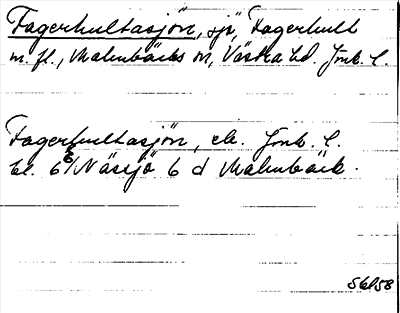 Fagerhultasjön, sjö, Fagerhult
m. fl., Malmbäcks sn, Västra hd. Jmk. l.
Fagerhultasjön, ek. Jmk. l.
bl. 6 Nässjö 6 d Malmbäck.